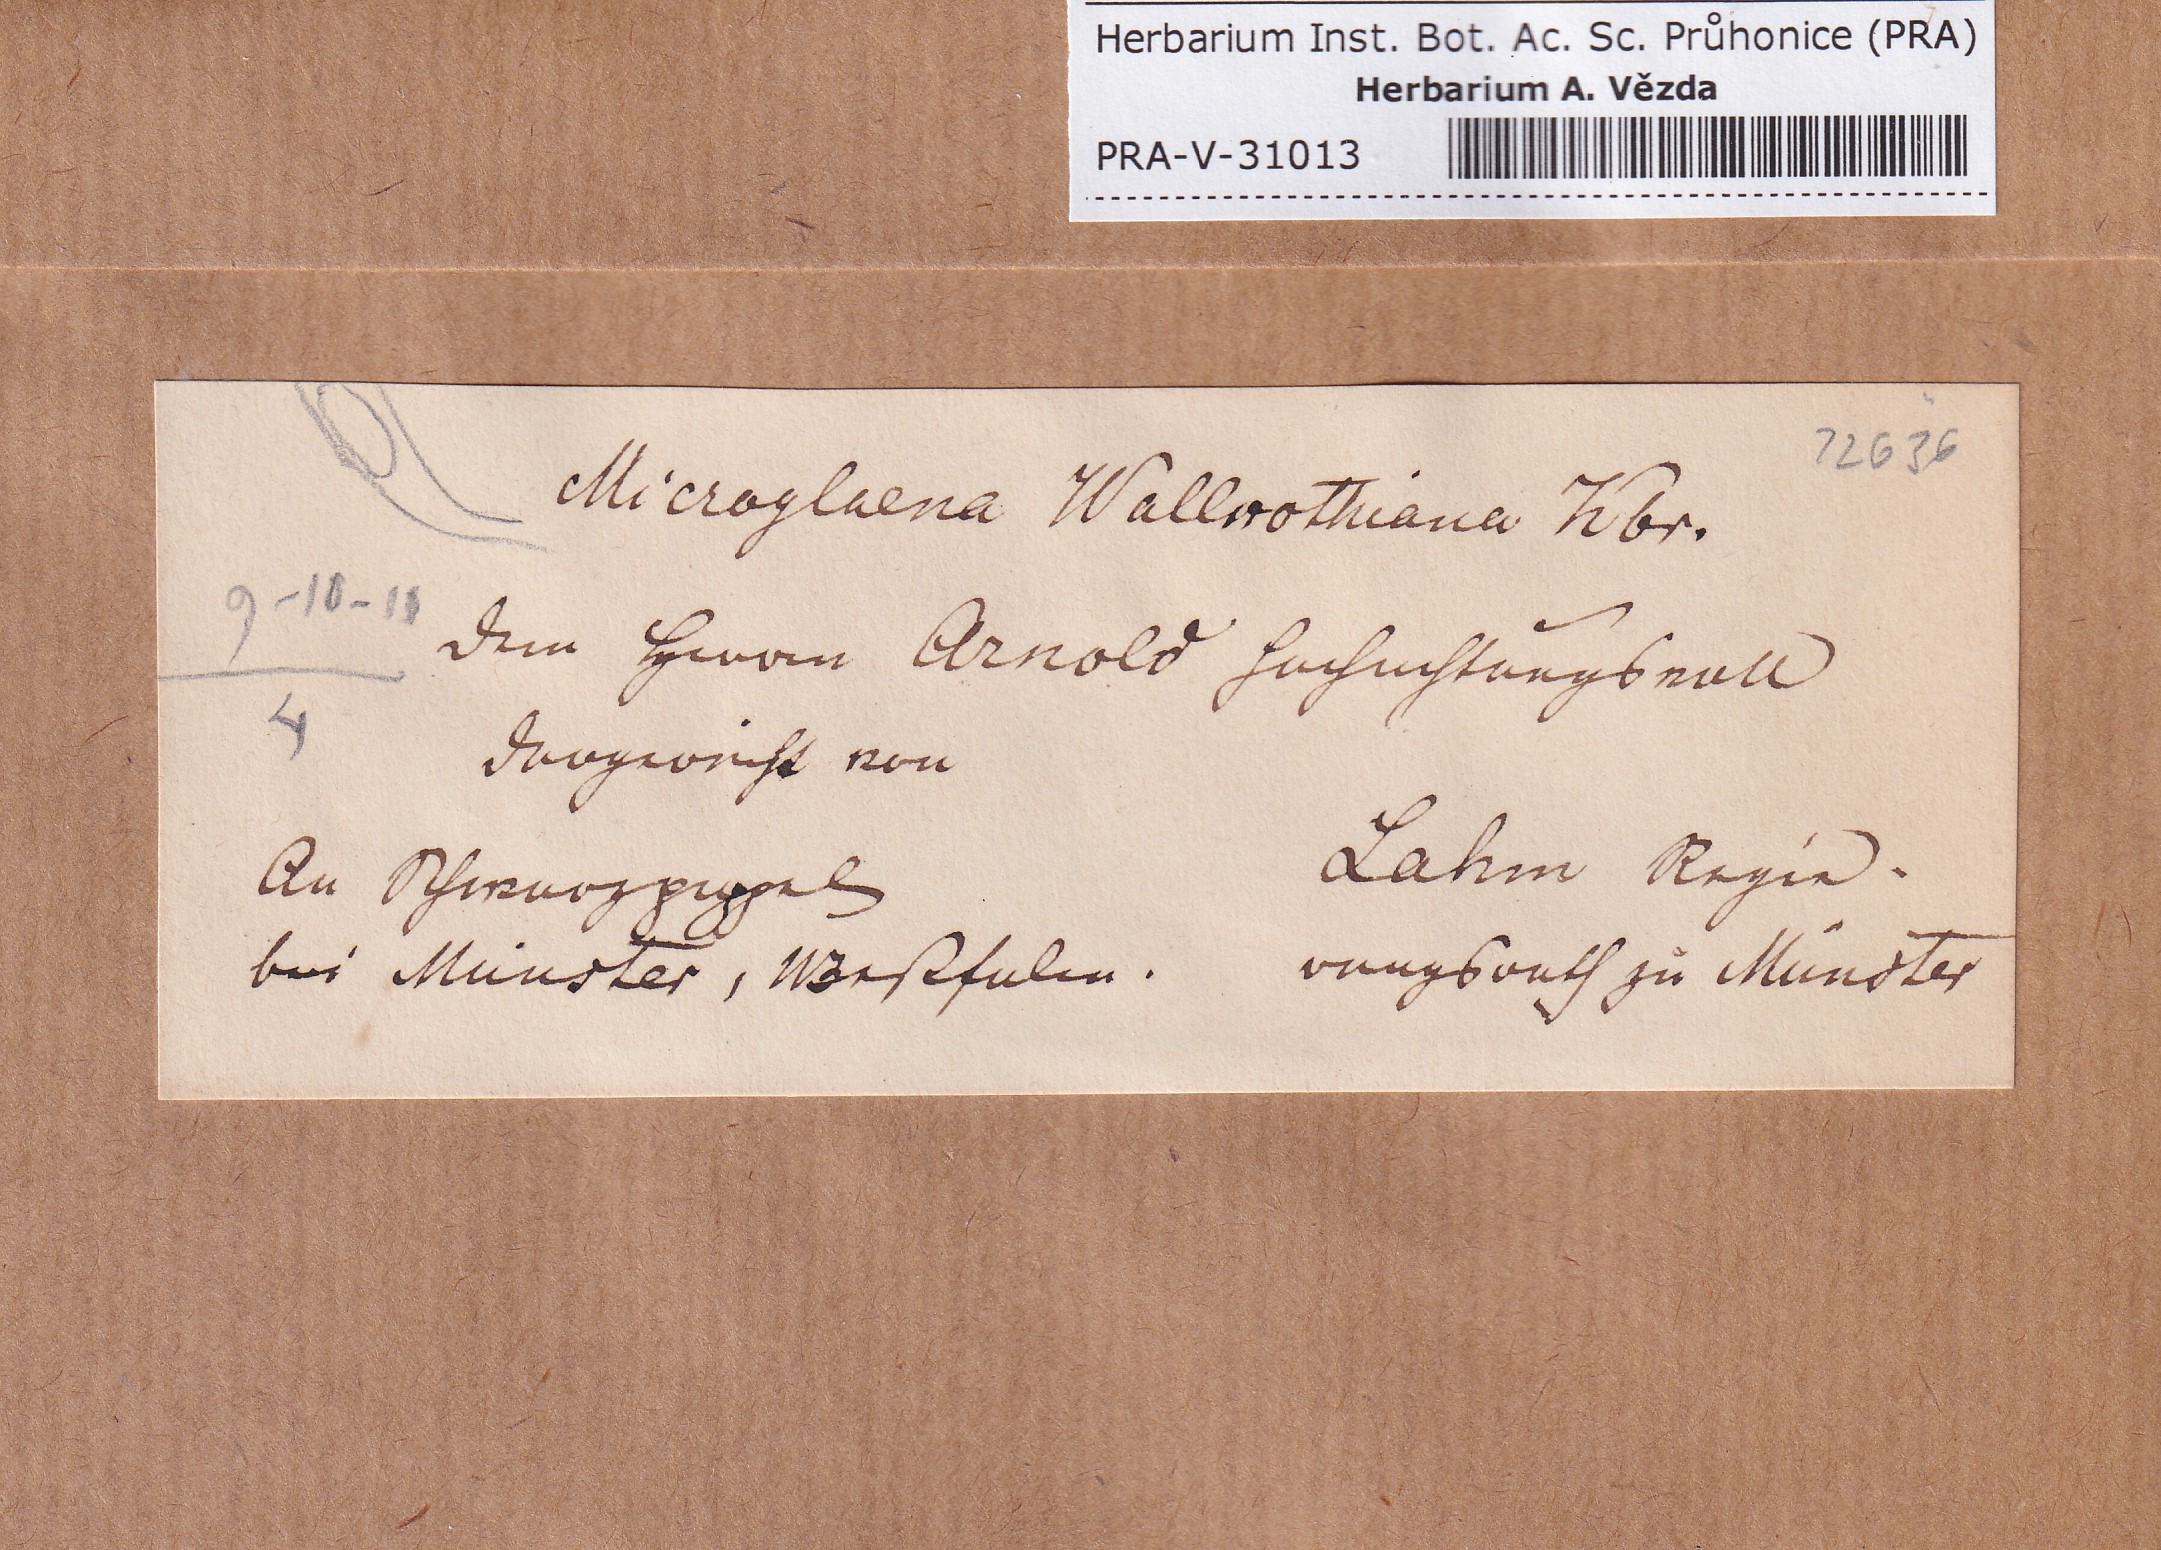 Herbarium Inst. Bot. Ac. Sc. Průhonice (PRA)
Herbarium A. Vězda
PRA-V-31013
72636
Microglaena Wallrothiana Kbr.
9-10-11
4
dem Herren Arnold hochachtungsvoll
dargereicht von
An Schwarzpappel
bei Münster, Westfalen.
Lahm Regie-
rungsrath zu Münster